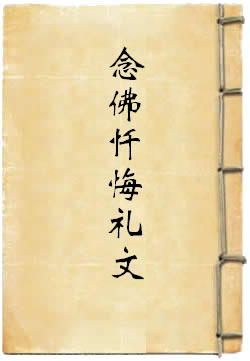 念佛忏悔礼文